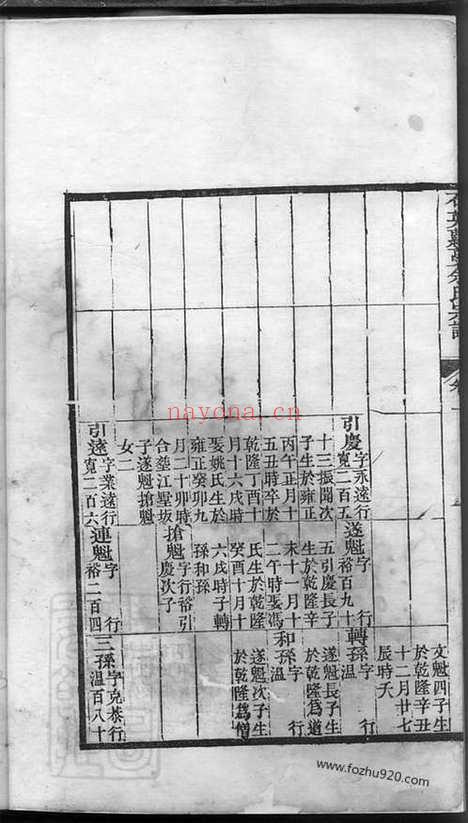 文魁四子生
於乾隆辛丑
十二月廿七
辰時夭
引慶字永遠行
寬二百五
十三振聞次
子生於雍正
丙午正月十
五丑時卒於
乾隆丁酉十
月十六戌時
娶姚氏生於
雍正癸卯九
月二十卯時
合塟江墅坂
子遂魁搶魁
女二
遂魁字 行
裕百九十
五引慶長子
生於乾隆辛
未十一月十
二午時娶馮
氏生於乾隆
癸酉十月十
六戌時子轉
孫和孫
搶魁字行裕引
慶次子
轉孫字 行
溫
遂魁長子生
於乾隆為道
和孫字 行
溫
遂魁次子生
於乾隆為僧
引遠字業遠行
寬二百六
連魁字 行
裕二百四
三孫字克恭行
溫百八十
nayona.cn
www.fozhu920.com